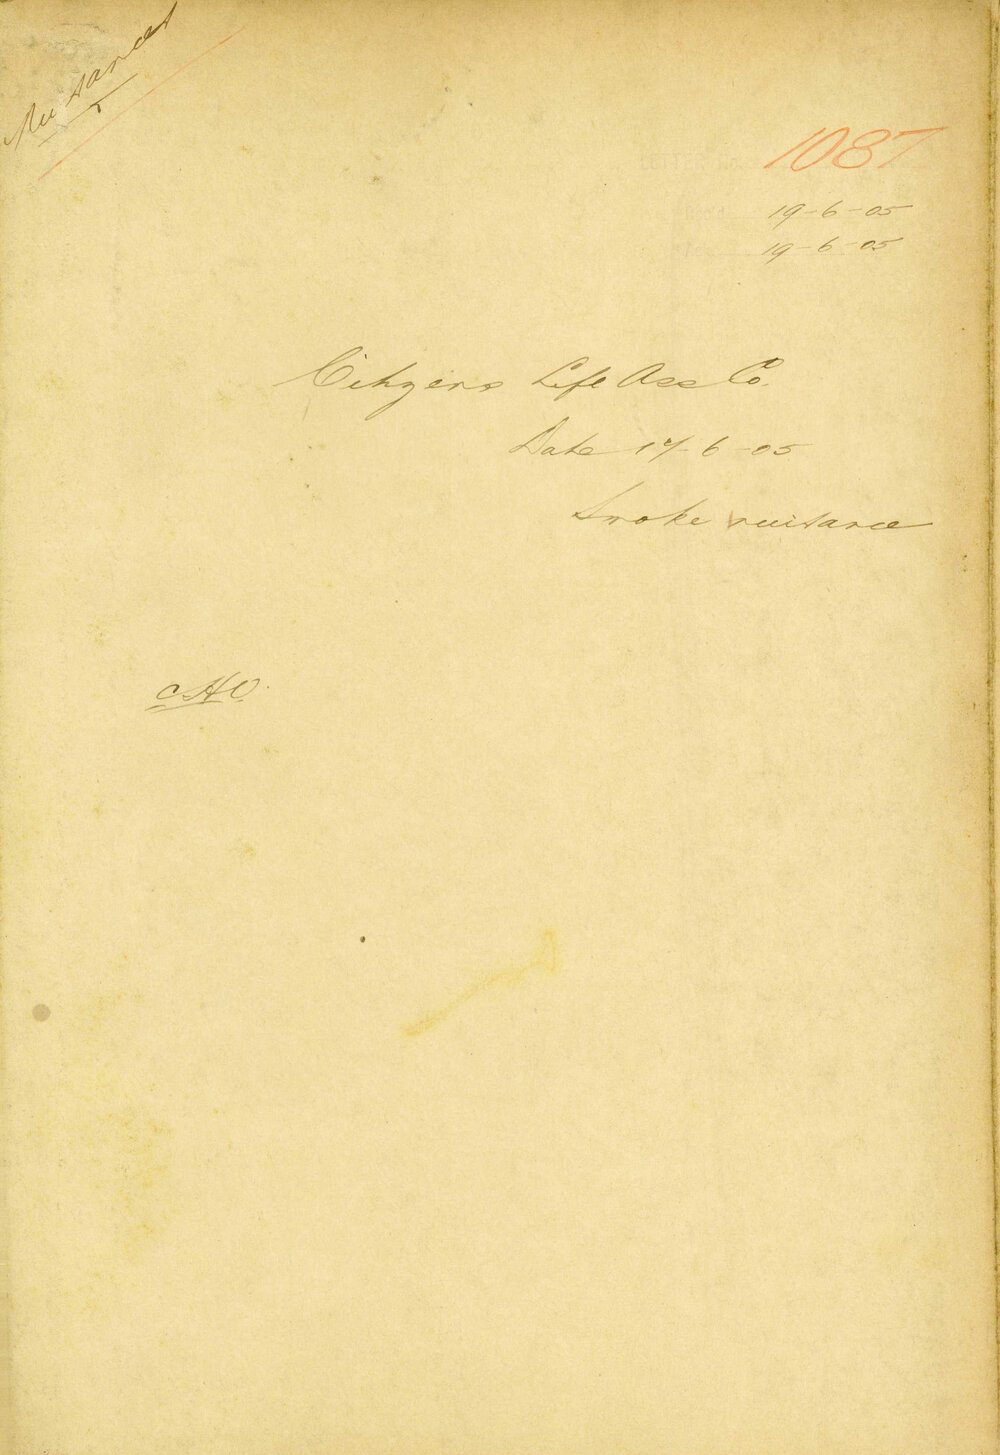 Nuisances
1087
19-6-05
19-6-05
Citizens Life Ass Co.
Date 17-6-05
Smoke nuisance
CHO.